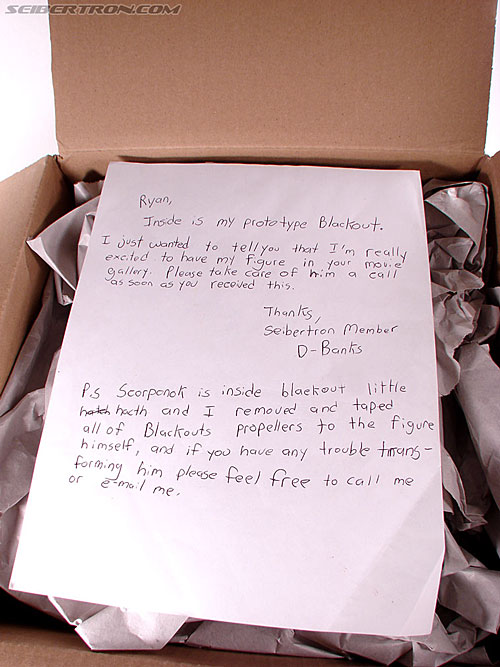 SEIBERTRON.COM
Ryan,
Inside is my prototype Blackout.
I just wanted to tell you that I'm really
excited to have my figure in your movie
gallery. Please take care of him a call
as soon as you received this.
Thanks,
Seibertron Member
D-Banks
P.S Scorponok is inside blackout little
hatch hacth and I removed and taped
all of Blackouts propellers to the figure
himself, and if you have any trouble trans-
forming him please feel free to call me
or e-mail me.